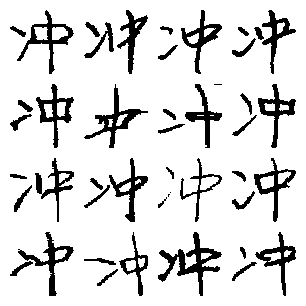 冲冲冲冲
冲冲冲冲
冲冲冲冲
冲冲冲冲